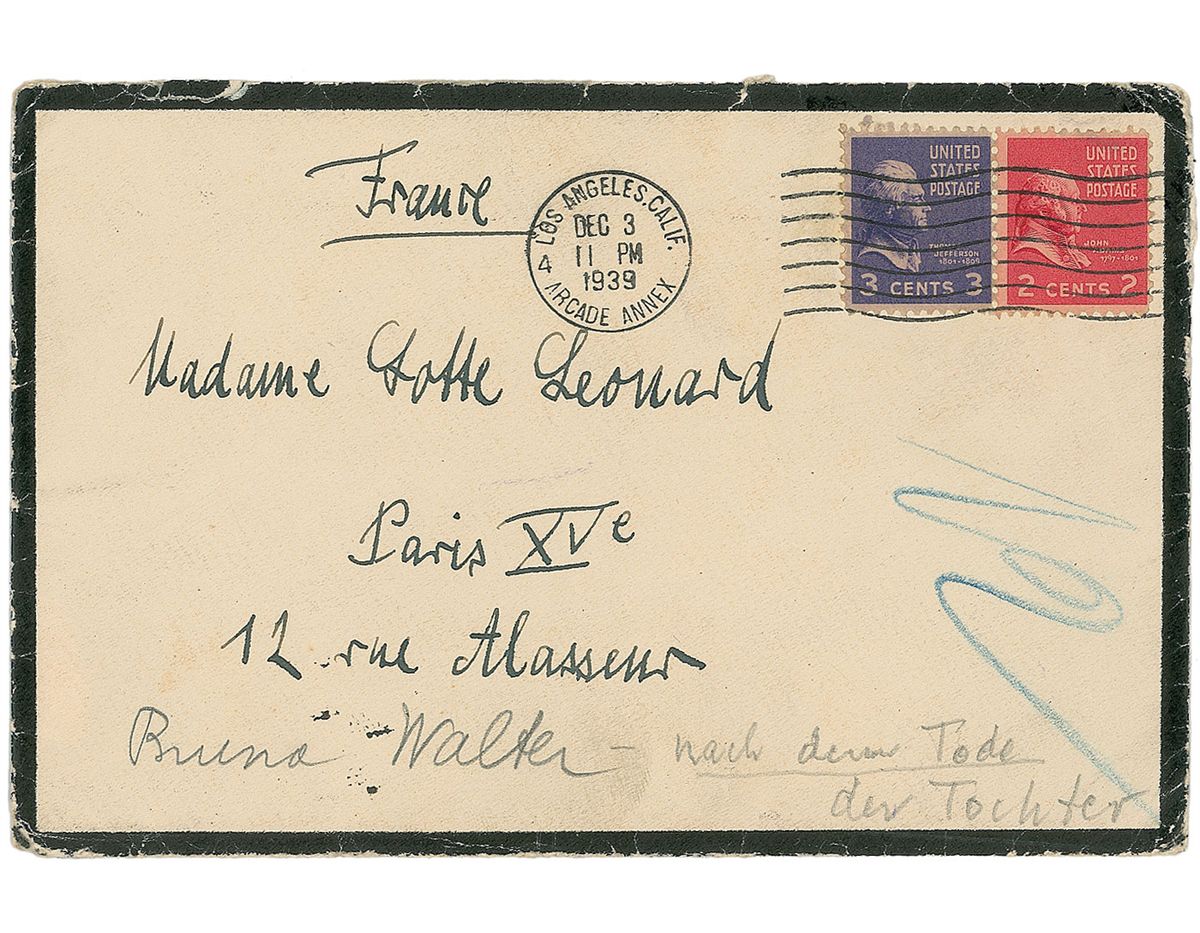 France
LOS ANGELES, CALIF.
DEC 3
11 PM
1939
4 ARCADE ANNEX
UNITED
STATES
POSTAGE
THOMAS
JEFFERSON
1801-1809
3 CENTS 3
UNITED
STATES
POSTAGE
JOHN
ADAMS
1797-1801
2 CENTS 2
Madame Lotte Leonard
Paris XVe
12 rue Alasseur
Bruno Walter – nach dem Tode
der Tochter